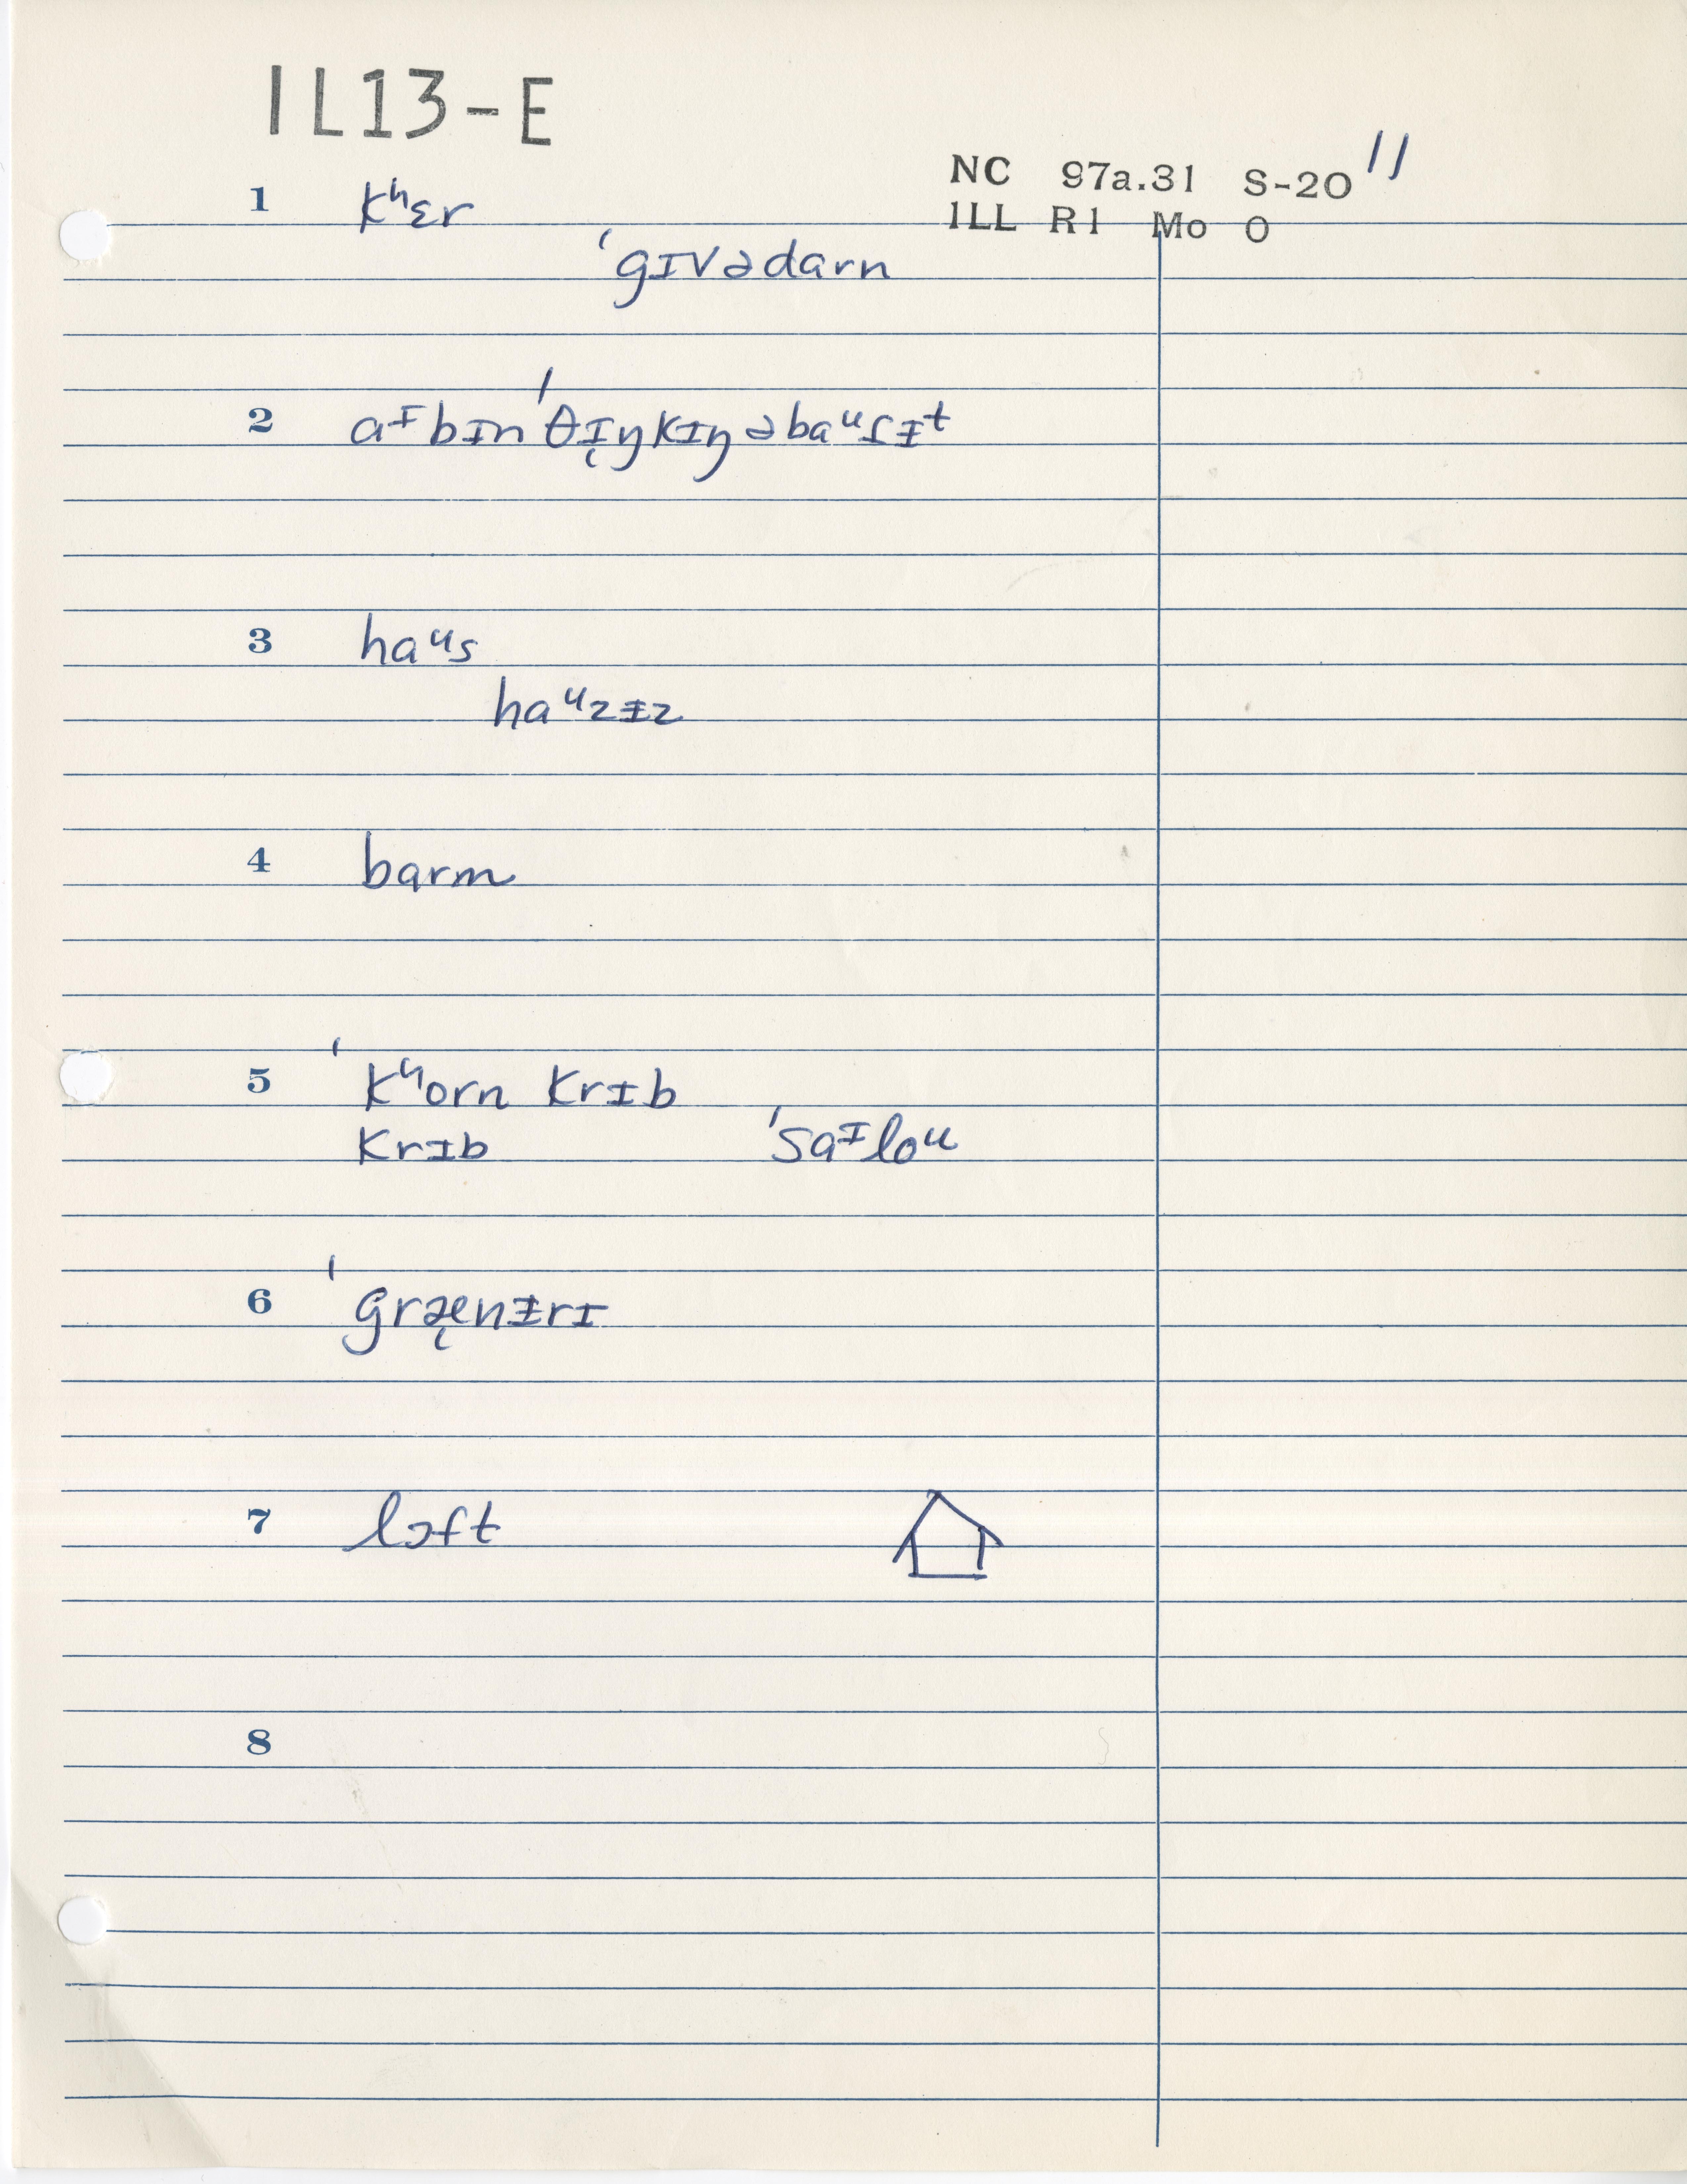 IL13-E
NC 97a.31 S-20 11
ILL R1 Mo O
1 kʰɛr
ˈgɪvədarn
2 aᶦbɪnˈθɪ̨ŋkɪŋəbaᵘɾɪ̵ᵗ
3 haᵘs
haᵘzɪ̵z
4 barm
5 ˈkʰorn krɪb
krɪb ˈsaᶦloᵘ
6 ˈgræ̨nɪ̵rɪ
7 lɔft
8